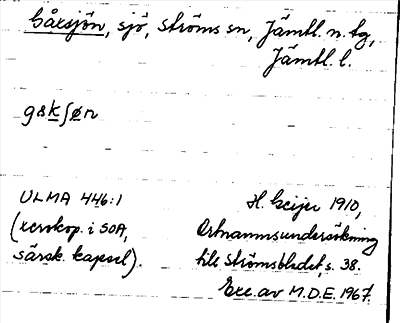 Gåxsjön, sjö, Ströms sn, Jämtl. n. tg,
Jämtl. l.
gakʃøn
ULMA 446:1
(xerokop. i SOA,
särsk. kapsel).
H. Geijer 1910,
Ortnamnsundersökning
till Strömsbladet, s. 38.
Exc. av M.D.E. 1967.